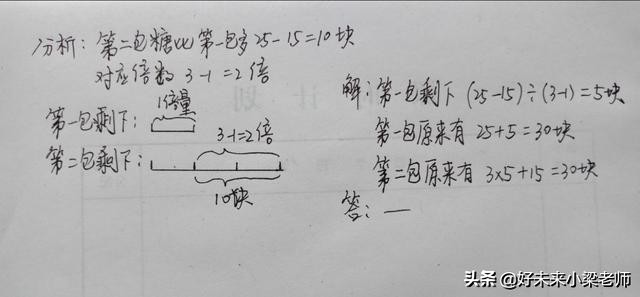 分析：第二包糖比第一包多25-15=10块
对应倍数 3-1=2倍
1倍量
第一包剩下：
3-1=2倍
第二包剩下：
10块
解：第一包剩下 (25-15)÷(3-1)=5块
第一包原来有 25+5=30块
第二包原来有 3×5+15=30块
答：—
头条 @好未来小梁老师